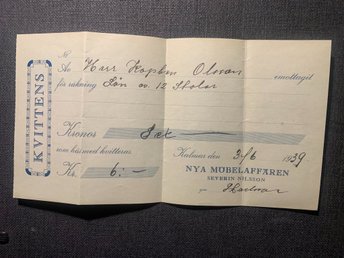 KVITTENS
N:
Av Herr Kapten Olsson
emottagit
för räkning Lån av 12 Stolar
Kronor Sex
som härmed kvitteras.
Kalmar den 3/6 1939
Kr. 6:—
NYA MÖBELAFFÄREN
SEVERIN NILSSON